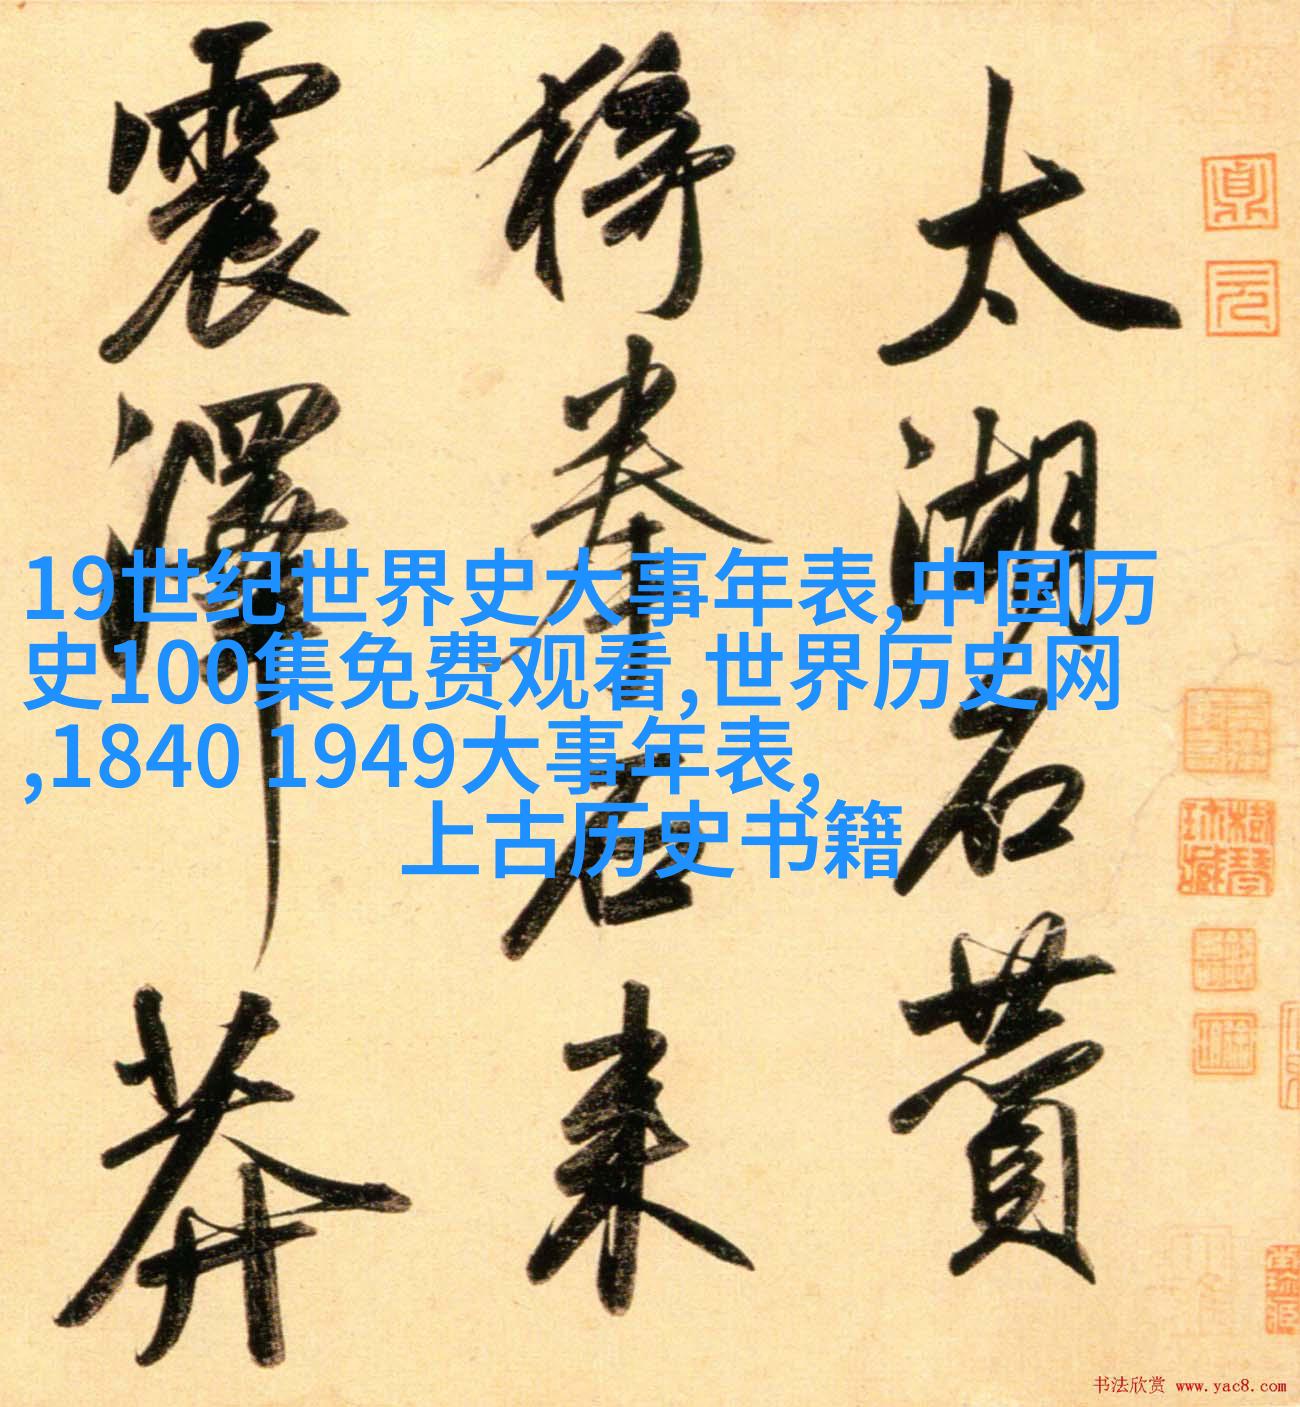 太湖石賛
猗拳石来
震澤莽
19世纪世界史大事年表,中国历
史100集免费观看,世界历史网
,1840 1949大事年表,
上古历史书籍
书法欣赏 www.yac8.com